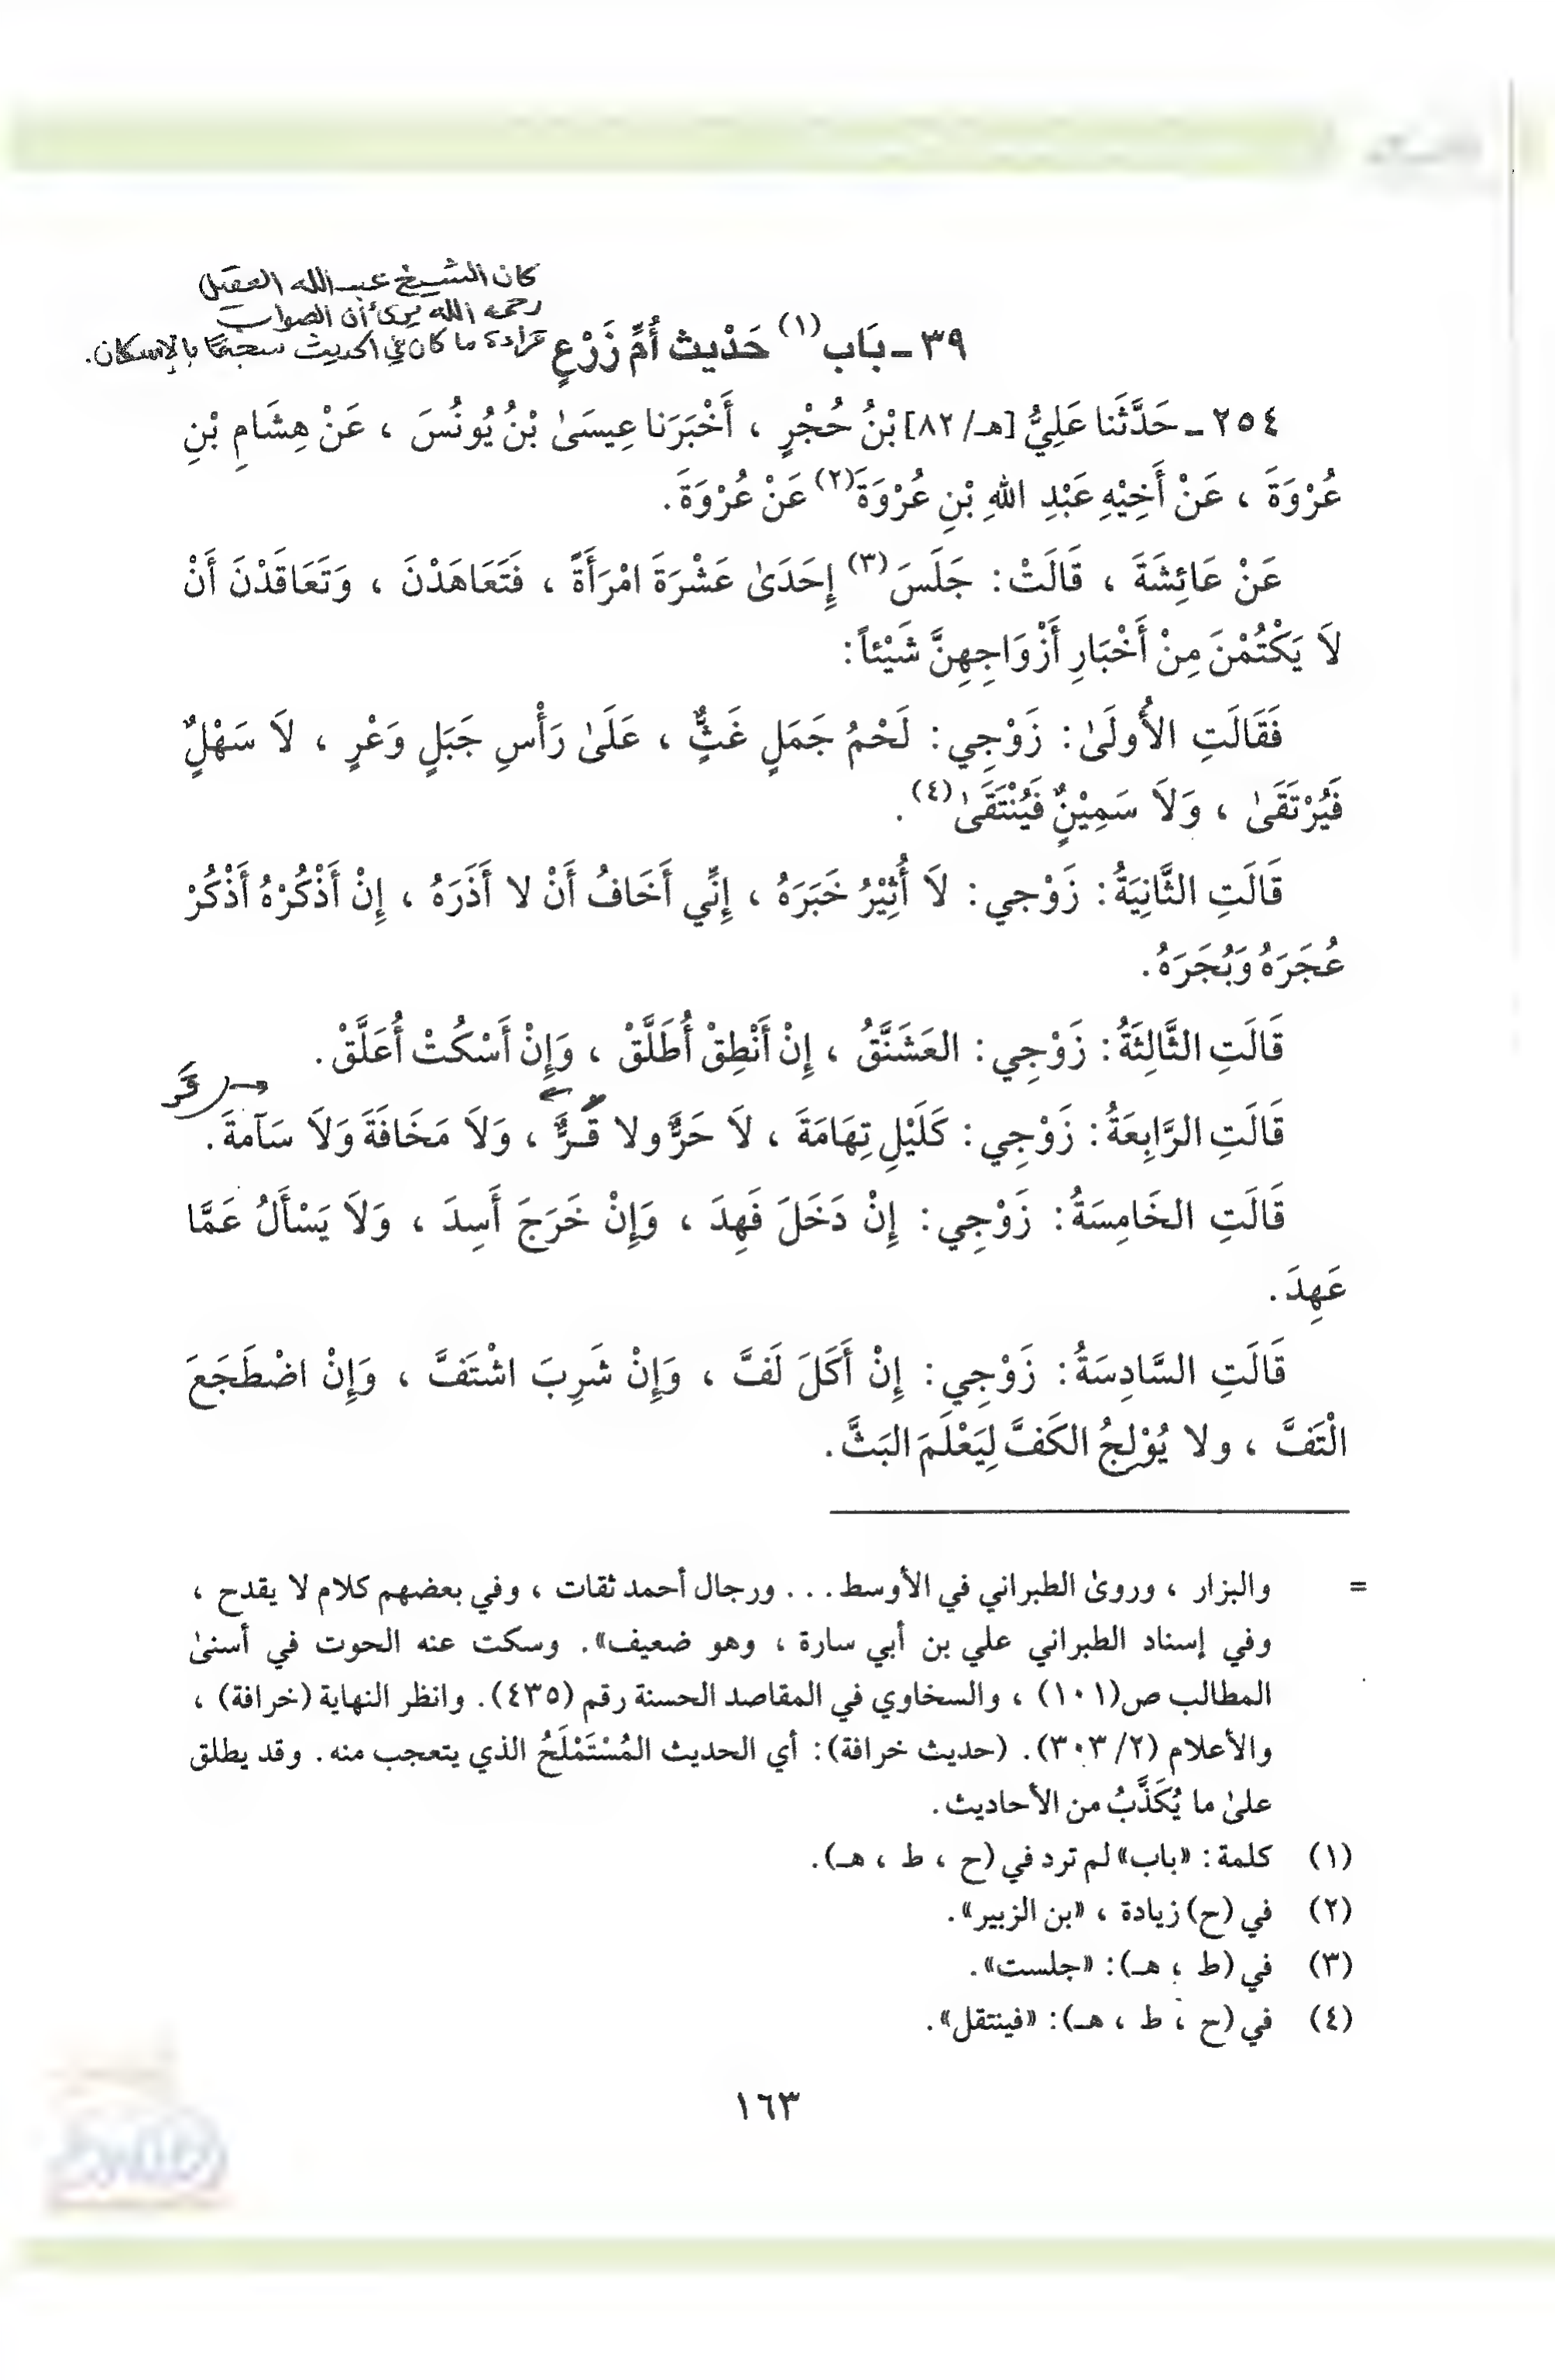 كان الشيخ عبد الله العقيل
رحمه الله يرى أن الصواب
قراءة ما كان في الحديث سجعًا بالإسكان.
٣٩ ـ بَاب(١) حَدْيث أُمِّ زَرْعٍ
٢٥٤ ـ حَدَّثَنا عَلِيُّ [هـ/ ٨٢] بْنُ حُجْرٍ ، أَخْبَرَنا عِيسَىٰ بْنُ يُونُسَ ، عَنْ هِشَامِ بْنِ
عُرْوَةَ ، عَنْ أَخِيْهِ عَبْدِ اللهِ بْنِ عُرْوَةَ(٢) عَنْ عُرْوَةَ .
عَنْ عَائِشَةَ ، قَالَتْ : جَلَسَ(٣) إِحَدَىٰ عَشْرَةَ امْرَأَةً ، فَتَعَاهَدْنَ ، وَتَعَاقَدْنَ أَنْ
لاَ يَكْتُمْنَ مِنْ أَخْبَارِ أَزْوَاجِهِنَّ شَيْئاً :
فَقَالَتِ الأُولَىٰ : زَوْجِي : لَحْمُ جَمَلٍ غَثٌّ ، عَلَىٰ رَأْسِ جَبَلٍ وَعْرٍ ، لاَ سَهْلٌ
فَيُرْتَقَىٰ ، وَلاَ سَمِيْنٌ فَيُنْتَقَىٰ(٤) .
قَالَتِ الثَّانِيَةُ : زَوْجي : لاَ أُثِيْرُ خَبَرَهُ ، إِنِّي أَخَافُ أَنْ لا أَذَرَهُ ، إِنْ أَذْكُرْهُ أَذْكُرْ
عُجَرَهُ وَبُجَرَهُ .
قَالَتِ الثَّالِثَةُ : زَوْجِي : العَشَنَّقُ ، إِنْ أَنْطِقْ أُطَلَّقْ ، وَإِنْ أَسْكُتْ أُعَلَّقْ .
قَالَتِ الرَّابِعَةُ : زَوْجِي : كَلَيْلِ تِهَامَةَ ، لاَ حَرٌّ ولا قَـرٌّ ، وَلاَ مَخَافَةَ وَلاَ سَآمةَ .
قَالَتِ الخَامِسَةُ : زَوْجِي : إِنْ دَخَلَ فَهِدَ ، وَإِنْ خَرَجَ أَسِدَ ، وَلاَ يَسْأَلُ عَمَّا
عَهِدَ .
قَالَتِ السَّادِسَةُ : زَوْجِي : إِنْ أَكَلَ لَفَّ ، وَإِنْ شَرِبَ اشْتَفَّ ، وَإِنْ اضْطَجَعَ
الْتَفَّ ، ولا يُوْلِجُ الكَفَّ لِيَعْلَمَ البَثَّ .
= والبزار ، وروىٰ الطبراني في الأوسط . . . ورجال أحمد ثقات ، وفي بعضهم كلام لا يقدح ،
وفي إسناد الطبراني علي بن أبي سارة ، وهو ضعيف» . وسكت عنه الحوت في أسنىٰ
المطالب ص(١٠١) ، والسخاوي في المقاصد الحسنة رقم (٤٣٥) . وانظر النهاية (خرافة) ،
والأعلام (٢/ ٣٠٣) . (حديث خرافة) : أي الحديث المُسْتَمْلَحُ الذي يتعجب منه . وقد يطلق
علىٰ ما يُكَذَّبُ من الأحاديث .
(١) كلمة : «باب» لم ترد في (ح ، ط ، هـ) .
(٢) في (ح) زيادة ، «بن الزبير» .
(٣) في (ط ، هـ) : «جلست» .
(٤) في (ح ، ط ، هـ) : «فينتقل» .
١٦٣